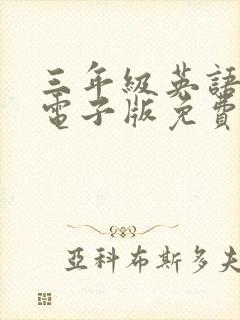 三年級英語
電子版免費
亞科布斯多夫